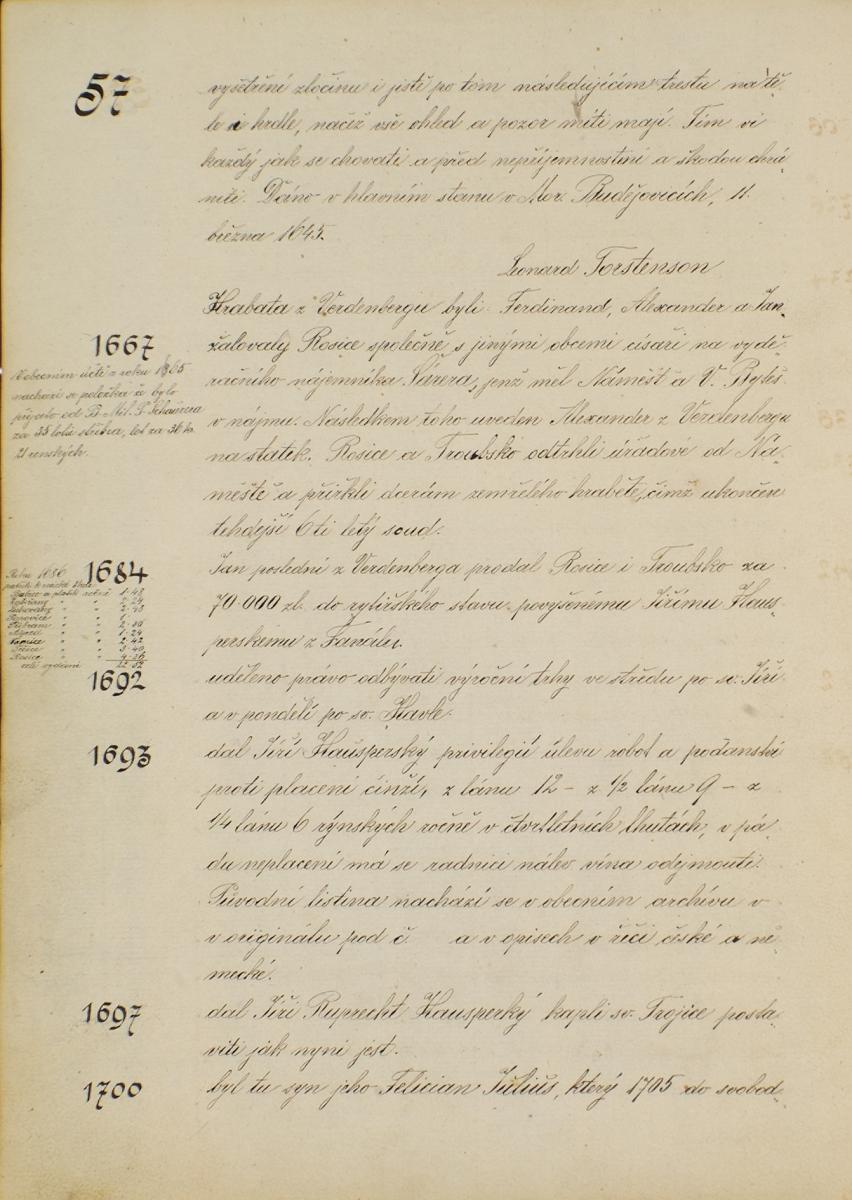 57
vyšetření zločinu i jistě po tom následujícím trestu na tě-
le i hrdle, načež vše ohled a pozor míti mají. Tím ví
každý jak se chovati a před nepříjemnostmi a škodou chrá
niti. Dáno v hlavním stanu v Mor. Budějovicích, 11.
března 1645.
Leonard Torstenson
Hrabata z Verdenbergu byli Ferdinand, Alexander a Jan,
1667
žalovaly Rosice společně s jinými obcemi císaři na vydě-
račního nájemníka, jenž měl Náměšť a V. Byteš
v nájmu. Následkem toho uveden Alexander z Verdenbergu
na statek. Rosice a Troubsko odtrhli úřadově od Ná-
měště a přiřkli dcerám zemřelého hraběte, čímž ukončen
tehdejší 6ti letý soud.
V obecním účtě z roku 1665
nachází se položka že bylo
přijato od
za 35 lotů stříbra, lot za 36 kr.
21 renských.
1684
Jan poslední z Verdenberga prodal Rosice i Troubsko za
70·000 zl. do rytířského stavu povýšenému Jiřímu Haus-
perskému z Fanálu.
Roku 1686
1692
uděleno právo odbývati výroční trhy ve středu po sv. Jiří
a v pondělí po sv. Havle.
1693
dal Jiří Hausperský privilegií úlevu robot a poddanství
proti placení činží, z lánu 12 – z 1/2 lánu 9 – z
1/4 lánu 6 rýnských ročně v čtvrtletních lhutách, v pá-
du neplacení má se radnici nálev vína odejmouti.
Původní listina nachází se v obecním archívu v
v originálu pod č. a v opisech v řeči české a ně-
mecké.
1697
dal Jiří Ruprecht Hausperký kapli sv. Trojice posta-
viti jak nyní jest.
1700
byl tu syn jeho Felician Julius, který 1705 do svobod-